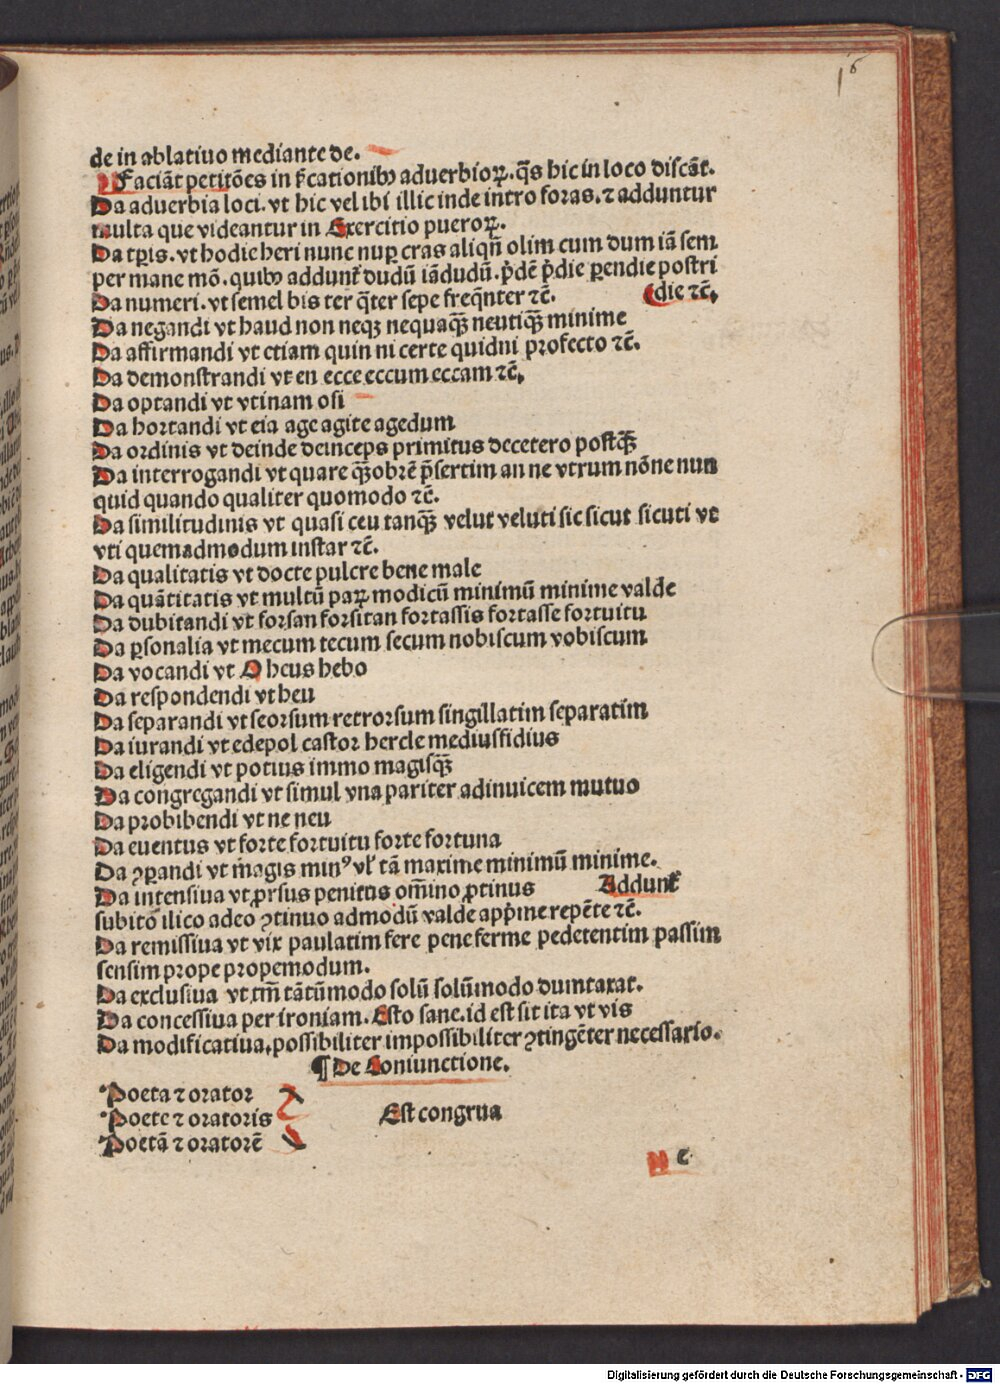 16
de in ablatiuo mediante de.
Faciāt petitōes in ẜcationibꝰ aduerbioꝝ. q̄s hic in loco discāt.
Da aduerbia loci. vt hic vel ibi illic inde intro foras. ⁊ adduntur
multa que videantur in Exercitio pueroꝝ.
Da tꝑis. vt hodie heri nunc nuꝑ cras aliqn̄ olim cum dum iā sem
per mane mō. quibꝰ addunt᷑ dudū iādudū. p̄dē p̄die ꝑendie postri
Da numeri. vt semel bis ter q̄ter sepe freq̄nter ⁊c̄. (die ⁊c̄.
Da negandi vt haud non neqꝫ nequaq̄ꝫ neutiq̄ꝫ minime
Da affirmandi vt etiam quin ni certe quidni profecto ⁊c̄.
Da demonstrandi vt en ecce eccum eccam ⁊c̄.
Da optandi vt vtinam osi
Da hortandi vt eia age agite agedum
Da ordinis vt deinde deinceps primitus decetero postq̄ꝫ
Da interrogandi vt quare q̄ꝫobrē p̄sertim an ne vtrum nōne nun
quid quando qualiter quomodo ⁊c̄.
Da similitudinis vt quasi ceu tanq̄ꝫ velut veluti sic sicut sicuti vt
vti quemadmodum instar ⁊c̄.
Da qualitatis vt docte pulcre bene male
Da quātitatis vt multū paꝝ modicū minimū minime valde
Da dubitandi vt forsan forsitan fortassis fortasse fortuitu
Da ꝑsonalia vt mecum tecum secum nobiscum vobiscum
Da vocandi vt O heus hebo
Da respondendi vt heu
Da separandi vt seorsum retrorsum singillatim separatim
Da iurandi vt edepol castor hercle mediusfidius
Da eligendi vt potius immo magisq̄ꝫ
Da congregandi vt simul vna pariter adinuicem mutuo
Da prohibendi vt ne neu
Da euentus vt forte fortuitu forte fortuna
Da ꝯꝑandi vt magis minꝰ vl᷑ tā maxime minimū minime.
Da intensiua vt ꝓrsus penitus om̄ino ꝓtinus Addunt᷑
subito ilico adeo ꝯtinuo admodū valde app̄ime repēte ⁊c̄.
Da remissiua vt vix paulatim fere pene ferme pedetentim passim
sensim prope propemodum.
Da exclusiua vt tm̄ tātūmodo solū solūmodo dumtaxat.
Da concessiua per ironiam. Esto sane. id est sit ita vt vis
Da modificatiua. possibiliter impossibiliter ꝯtingēter necessario.
¶ De Coniunctione.
Poeta ⁊ orator
Poete ⁊ oratoris Est congrua
Poetā ⁊ oratorē
c
Digitalisierung gefördert durch die Deutsche Forschungsgemeinschaft - DFG